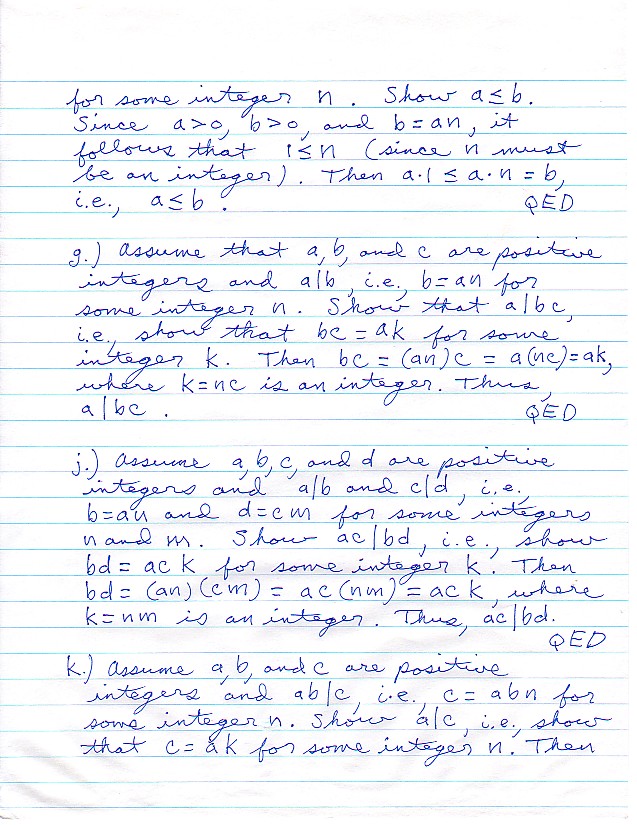 for some integer n. Show a≤b.
Since a>0, b>0, and b=an, it
follows that 1≤n (since n must
be an integer). Then a·1 ≤ a·n = b,
i.e., a≤b. QED
g.) Assume that a, b, and c are positive
integers and a|b, i.e., b=an for
some integer n. Show that a|bc,
i.e., show that bc = ak for some
integer k. Then bc = (an)c = a(nc)=ak,
where k=nc is an integer. Thus,
a|bc. QED
j.) Assume a, b, c, and d are positive
integers and a|b and c|d, i.e.,
b=an and d=cm for some integers
n and m. Show ac|bd, i.e., show
bd = ac k for some integer k. Then
bd = (an)(cm) = ac(nm) = ac k, where
k=nm is an integer. Thus, ac|bd.
QED
k.) Assume a, b, and c are positive
integers and ab|c, i.e., c = abn for
some integer n. Show a|c, i.e., show
that c = ak for some integer n. Then